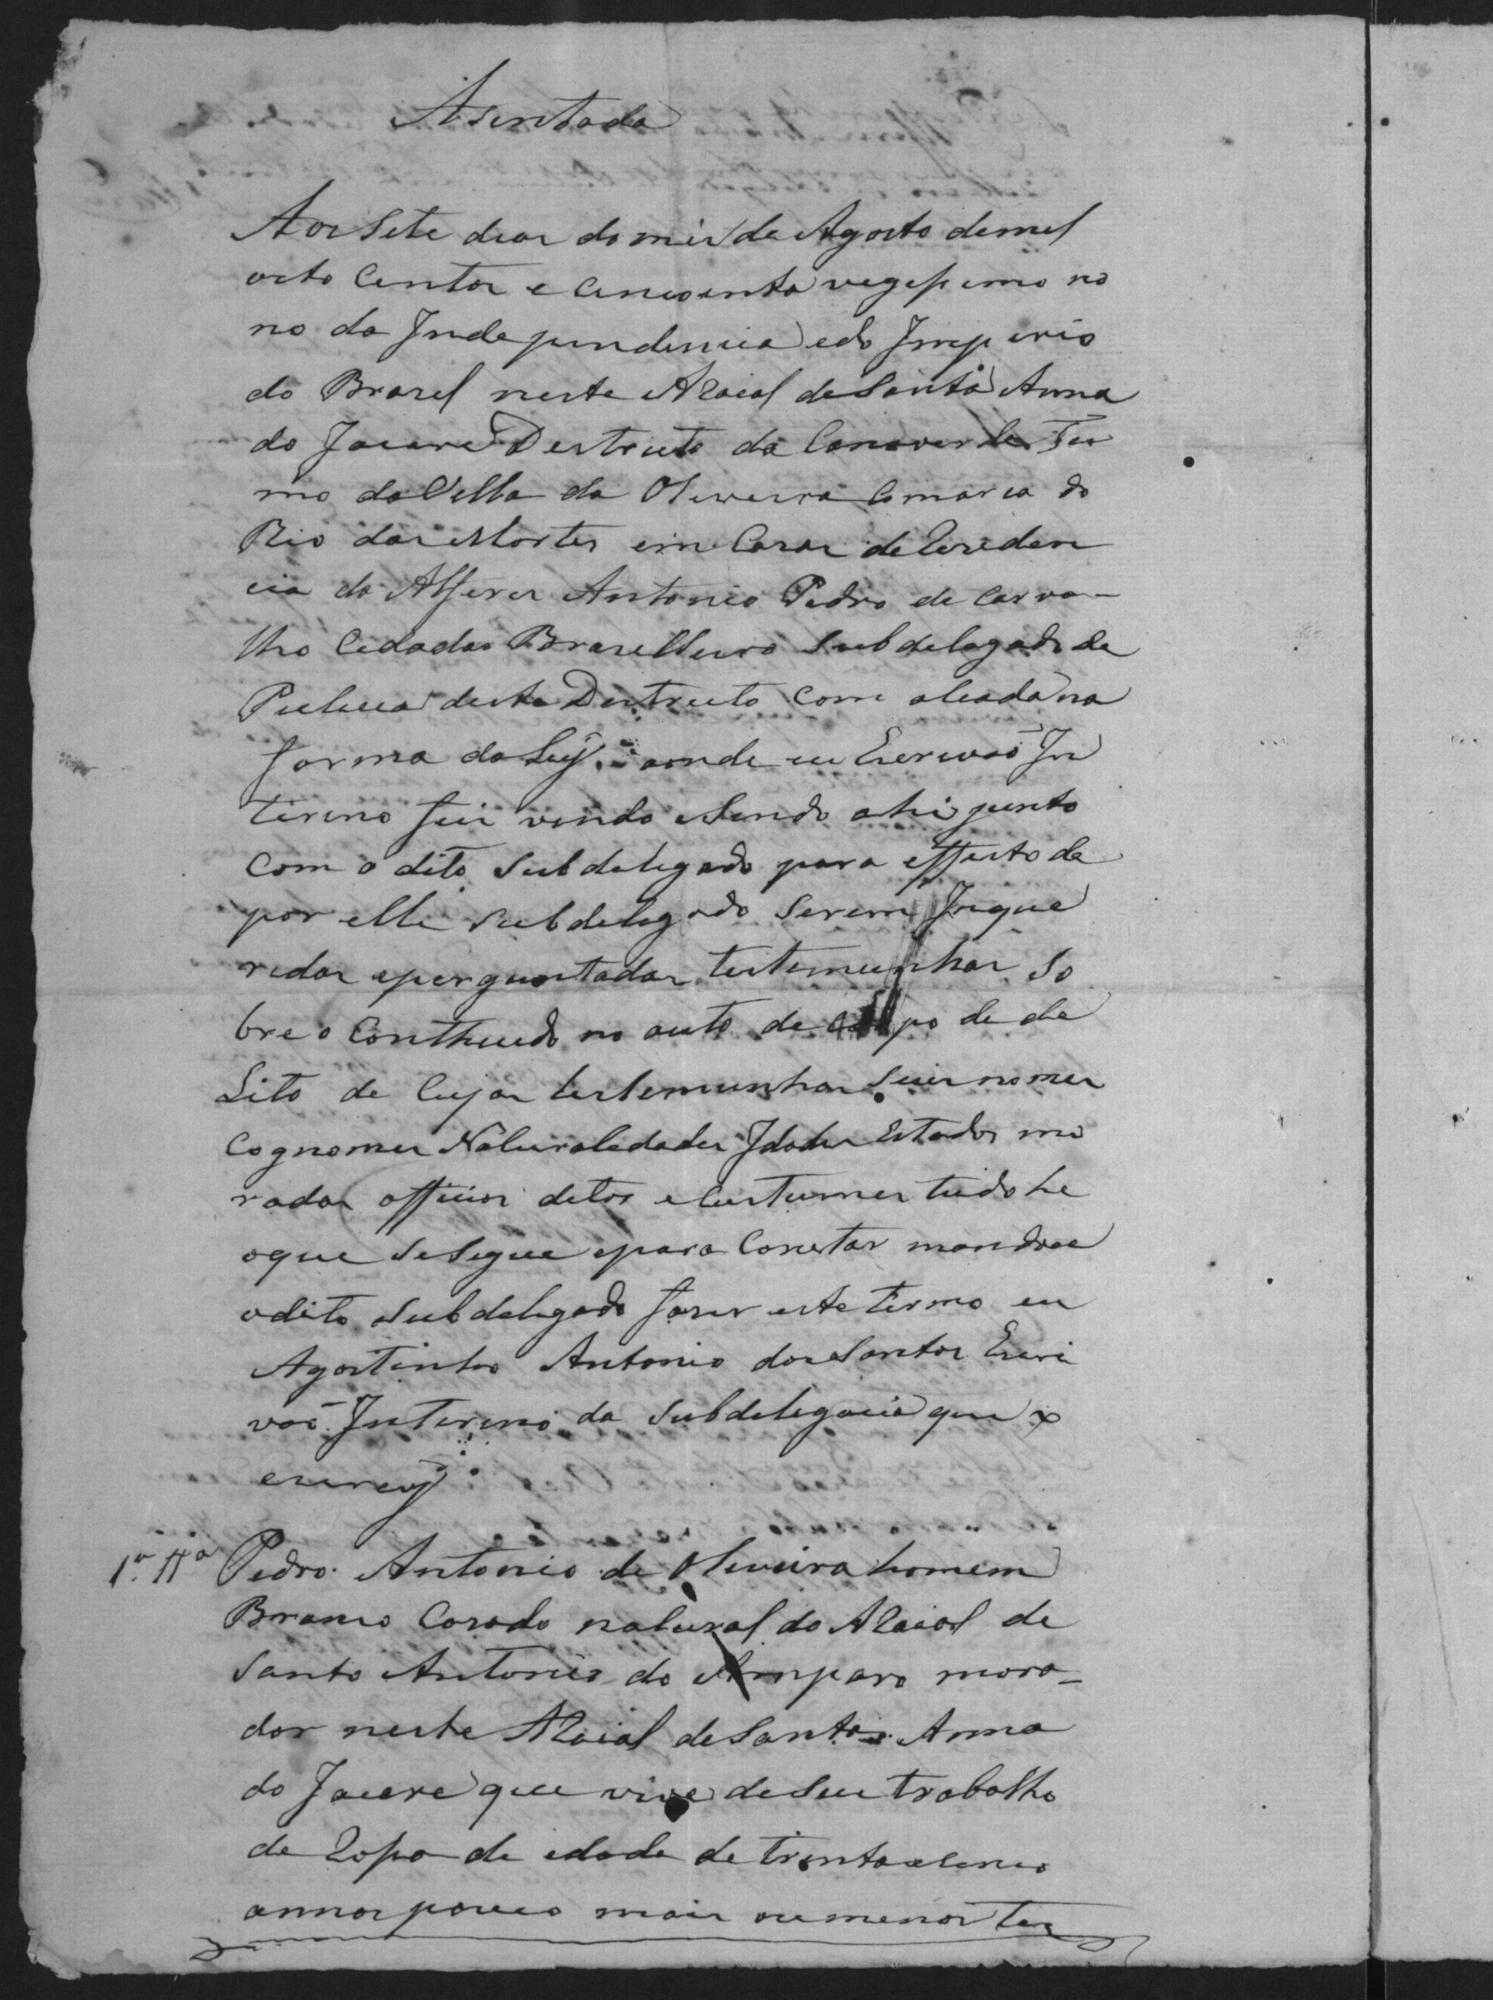 Asentada
Aos Sete dias do mes de Agosto de mil
oito Centos e Cincoenta vegessimo no
no da Independencia e do Imperio
do Brasil neste Araial de Santa Anna
do Jacare Destricto da Canaverde Ter
mo da Villa da Oliveira Comarca do
Rio das Mortes em Casas de Cresiden
cia do Alferes Antonio Pedro de Carva-
lho Cidadão Brasilleiro Subdelegado de
Pulicia deste Destricto com alsada na
forma da Ley, aonde eu Escrivaõ In
terino fui vindo e Sendo ahi junto
Com o dito Subdelegado para effeito de
por elle Subdelegado Serem Inque
ridas e perguntadas testemunhas So
bre o Conthiudo no auto de Corpo de de
Lito de Cujas testemunhas Seus nomes
Cognomes Naturalidades Idades Estados mo
radas officios ditos e Custumes tudo he
o que Se Segue e para Constar mandou
o dito Subdelegado faser este termo eu
Agostinho Antonio dos Santos Escri
vaõ Interino da Subdelegacia que o
escrevy
1.ª Tª Pedro Antonio de Oliveira homem
Branco Casado natural do Araial de
Santo Antonio do Amparo mora-
dor neste Araial de Santa Anna
do Jacare que vive de Seu trabalho
de Rossa de idade de trinta e Cinco
annos pouco mais ou menos tes